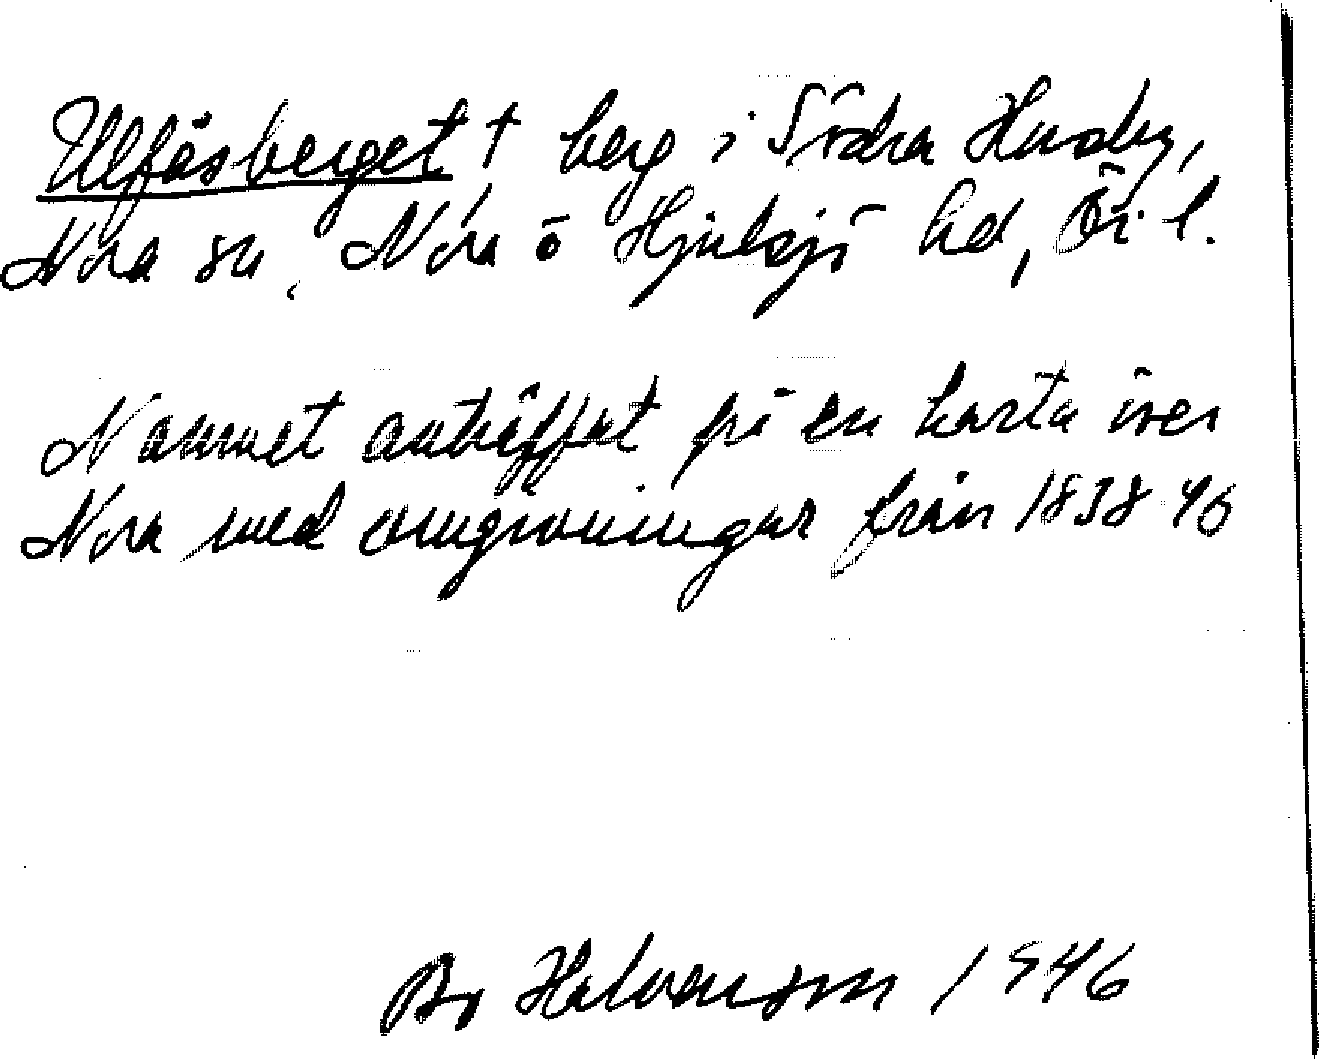 Ulfåsberget † berg i Södra Husby,
Nora sn, Nora o Hjulsjö hd, Ör. l.
Namnet anträffat på en karta över
Nora med omgivningar från 1838-46
Bo Halvarson 1946